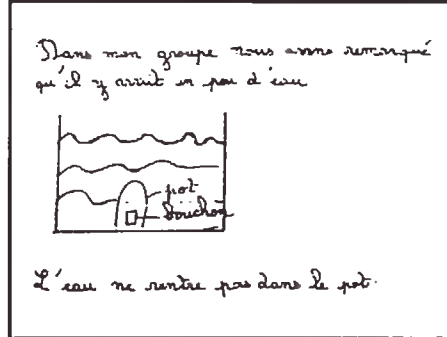 Dans mon groupe nous avons remarqué
qu'il y avait un peu d'eau
pot
bouchon
L'eau ne rentre pas dans le pot.